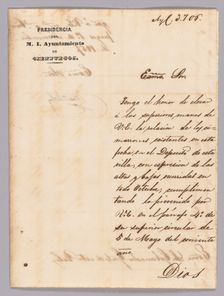 PRESIDENCIA
DEL
M. I. Ayuntamiento
DE
CIENFUEGOS.
Exmo. Sor.
Tengo el honor de elevar
á las superiores manos de
V.E. la relacion de los cimarrones
existentes en este
Deposito de esta
villa, con espresion de las
altas y bajas ocurridas en
todo Octubre; cumplimen
tando lo prevenido por
V.E. en el párrafo 4º de
su superior circular de
5 de Mayo del corriente
año.
Dios